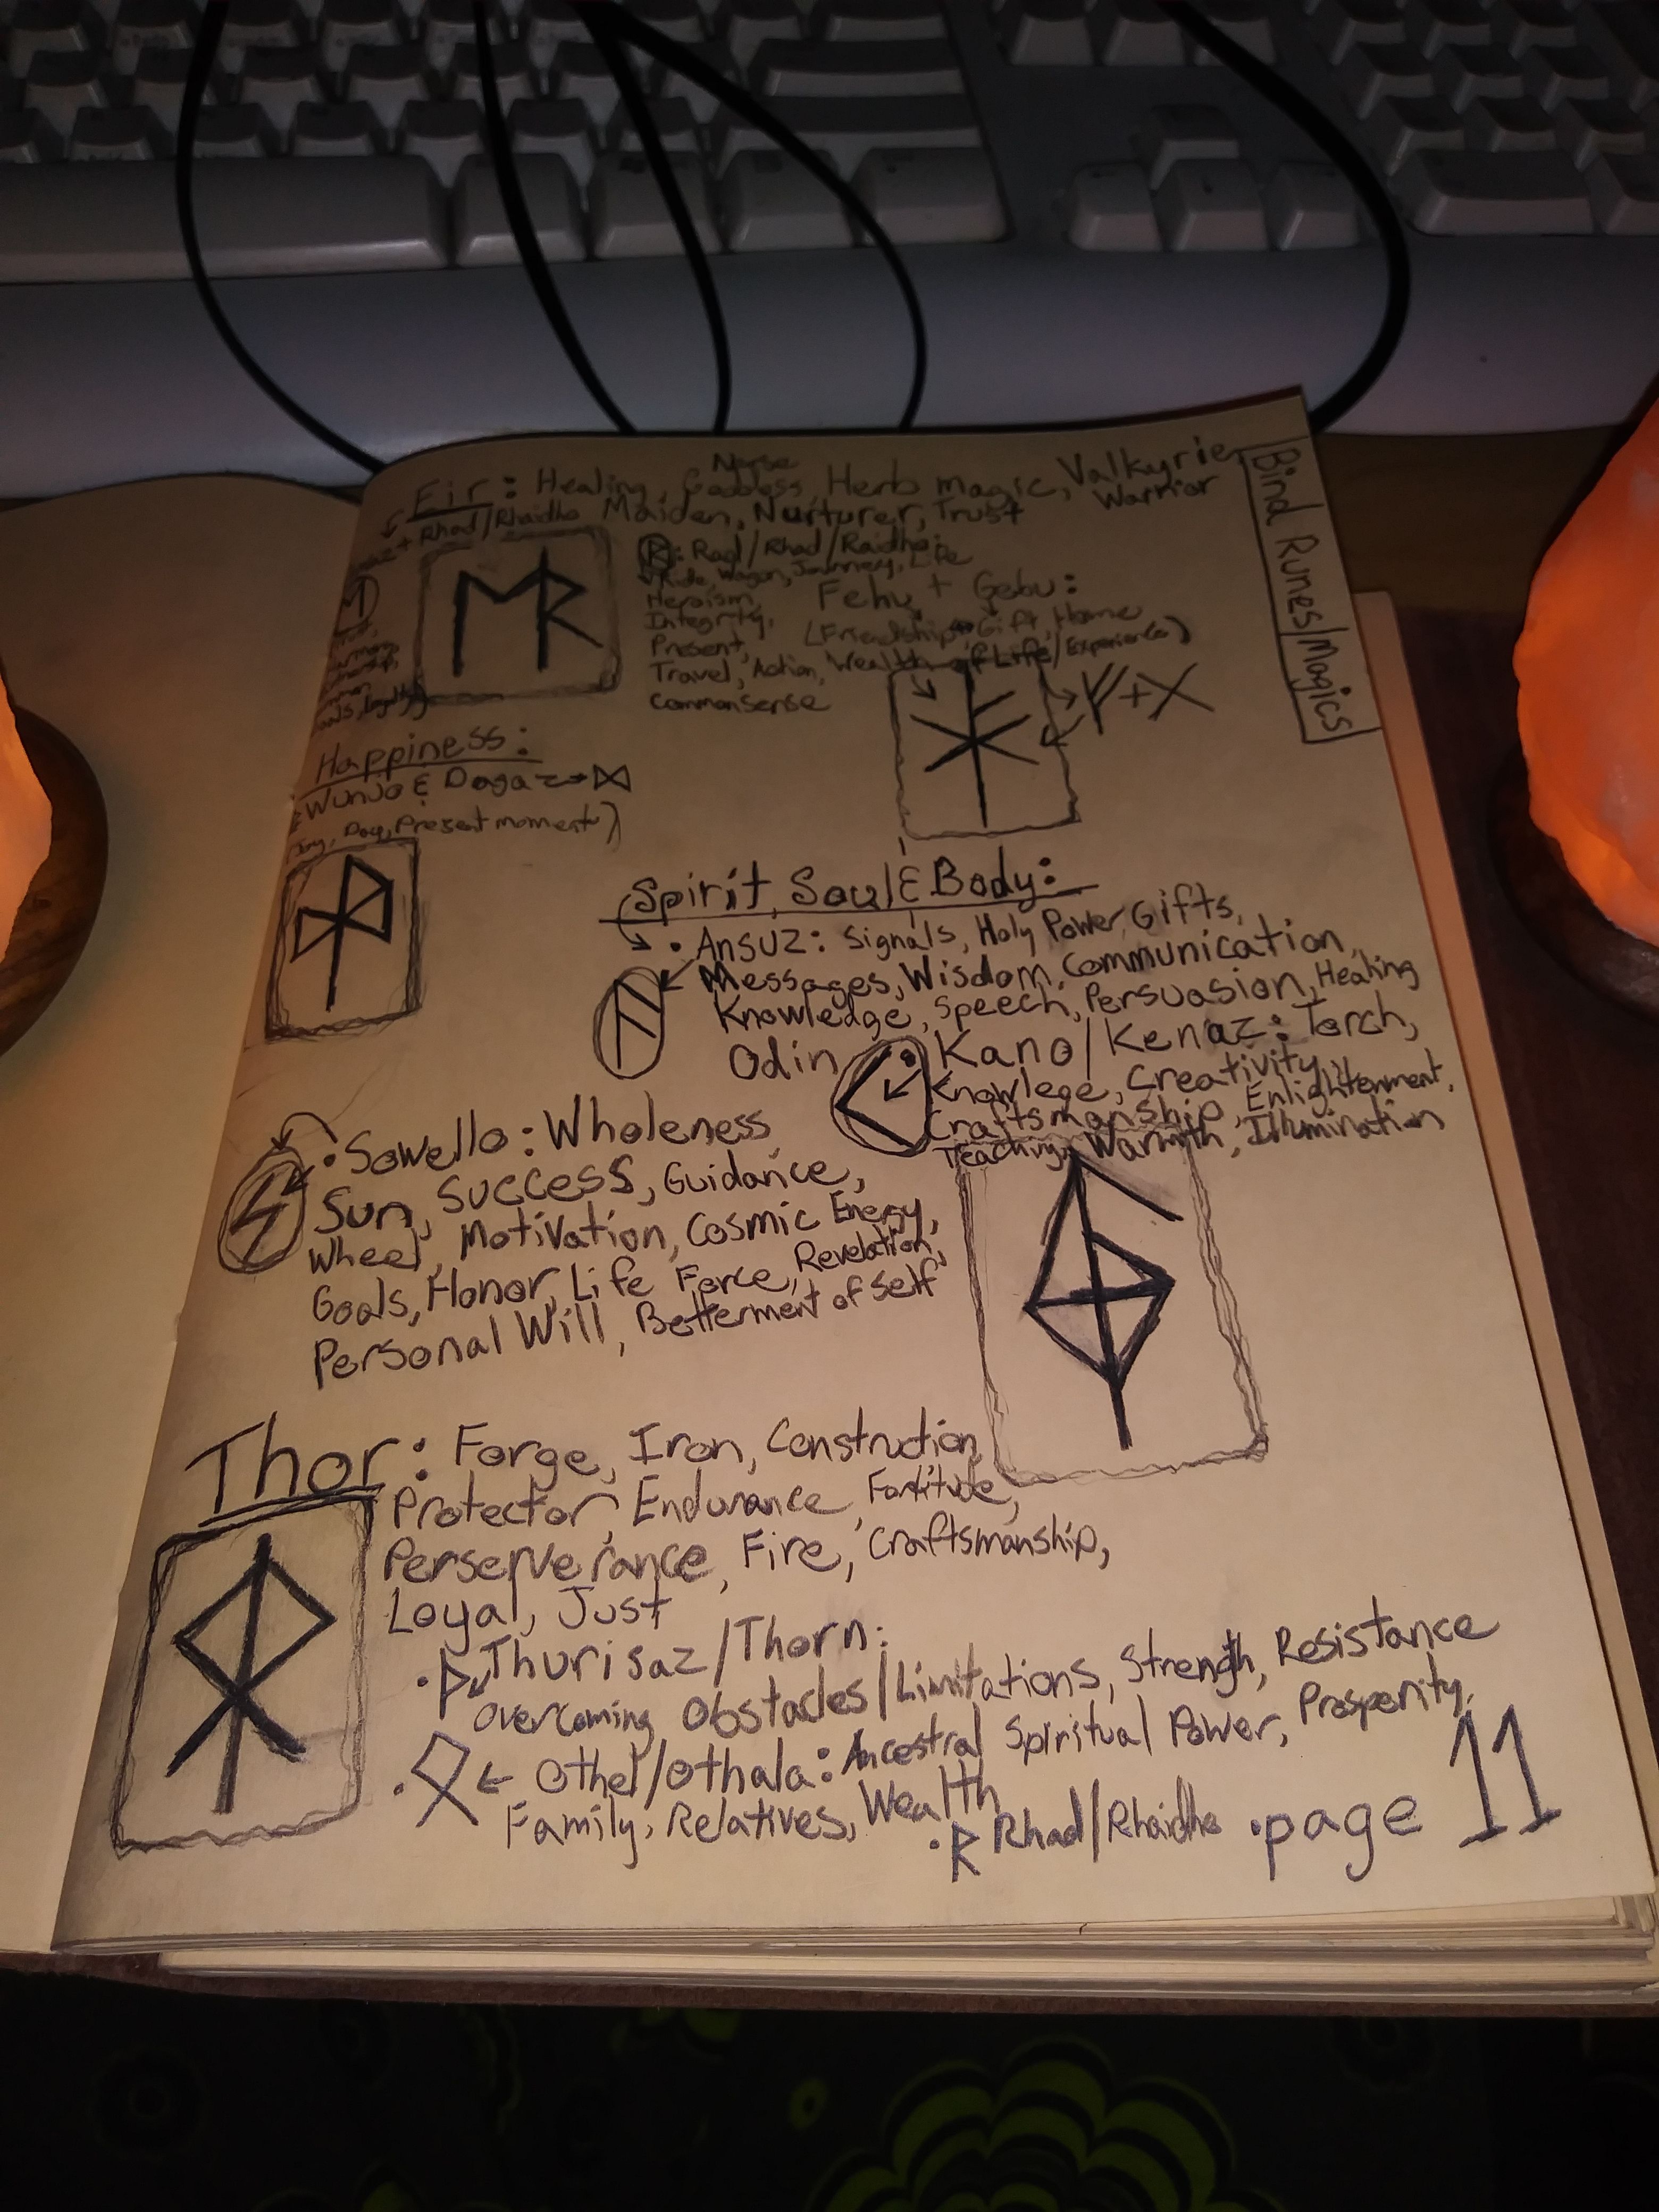 Bind Runes/Magics
Eir: Healing, Norse Goddess, Herb magic, Valkyrie
Maiden, Nurturer, Trust Warrior
+ Rhad/Rhaidho
R: Rad/Rhad/Raidho:
Ride, Wagon, Journey, Life
Heroism,
Integrity,
Present,
Travel, Action,
Commonsense
Fehu + Gebu:
(Friendship, Gift, Home
Wealth of Life/Experience)
ᚠ+X
Happiness:
Wunjo & Dagaz→ᛞ
Joy, Day, Present moment)
Spirit, Soul & Body:
• Ansuz: Signals, Holy Power, Gifts,
Messages, Wisdom, Communication,
Knowledge, Speech, Persuasion, Healing
Odin
• Kano/Kenaz: Torch,
Knowlege, Creativity,
Craftsmanship, Enlightenment,
Teaching, Warmth, Illumination
• Sowello: Wholeness
Sun, Success, Guidance,
Wheel, Motivation, Cosmic Energy,
Goals, Honor, Life Force, Revelation,
Personal Will, Betterment of self
Thor: Forge, Iron, Construction,
Protector, Endurance, Fortitude,
Perserverance, Fire, Craftsmanship,
Loyal, Just
• ᚦ Thurisaz/Thorn:
Overcoming Obstacles/Limitations, Strength, Resistance
• ᛟ ← Othel/Othala: Ancestral Spiritual Power, Prosperity,
Family, Relatives, Wealth
• ᚱ Rhad/Rhaidho • page 11